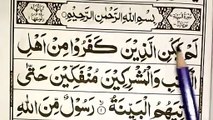 بِسْمِ اللّٰهِ الرَّحْمٰنِ الرَّحِيْمِ
لَمْ يَكُنِ الَّذِيْنَ كَفَرُوْا مِنْ اَهْلِ
الْكِتٰبِ وَالْمُشْرِكِيْنَ مُنْفَكِّيْنَ حَتّٰى
تَاْتِيَهُمُ الْبَيِّنَةُ ۙ رَسُوْلٌ مِّنَ اللّٰهِ